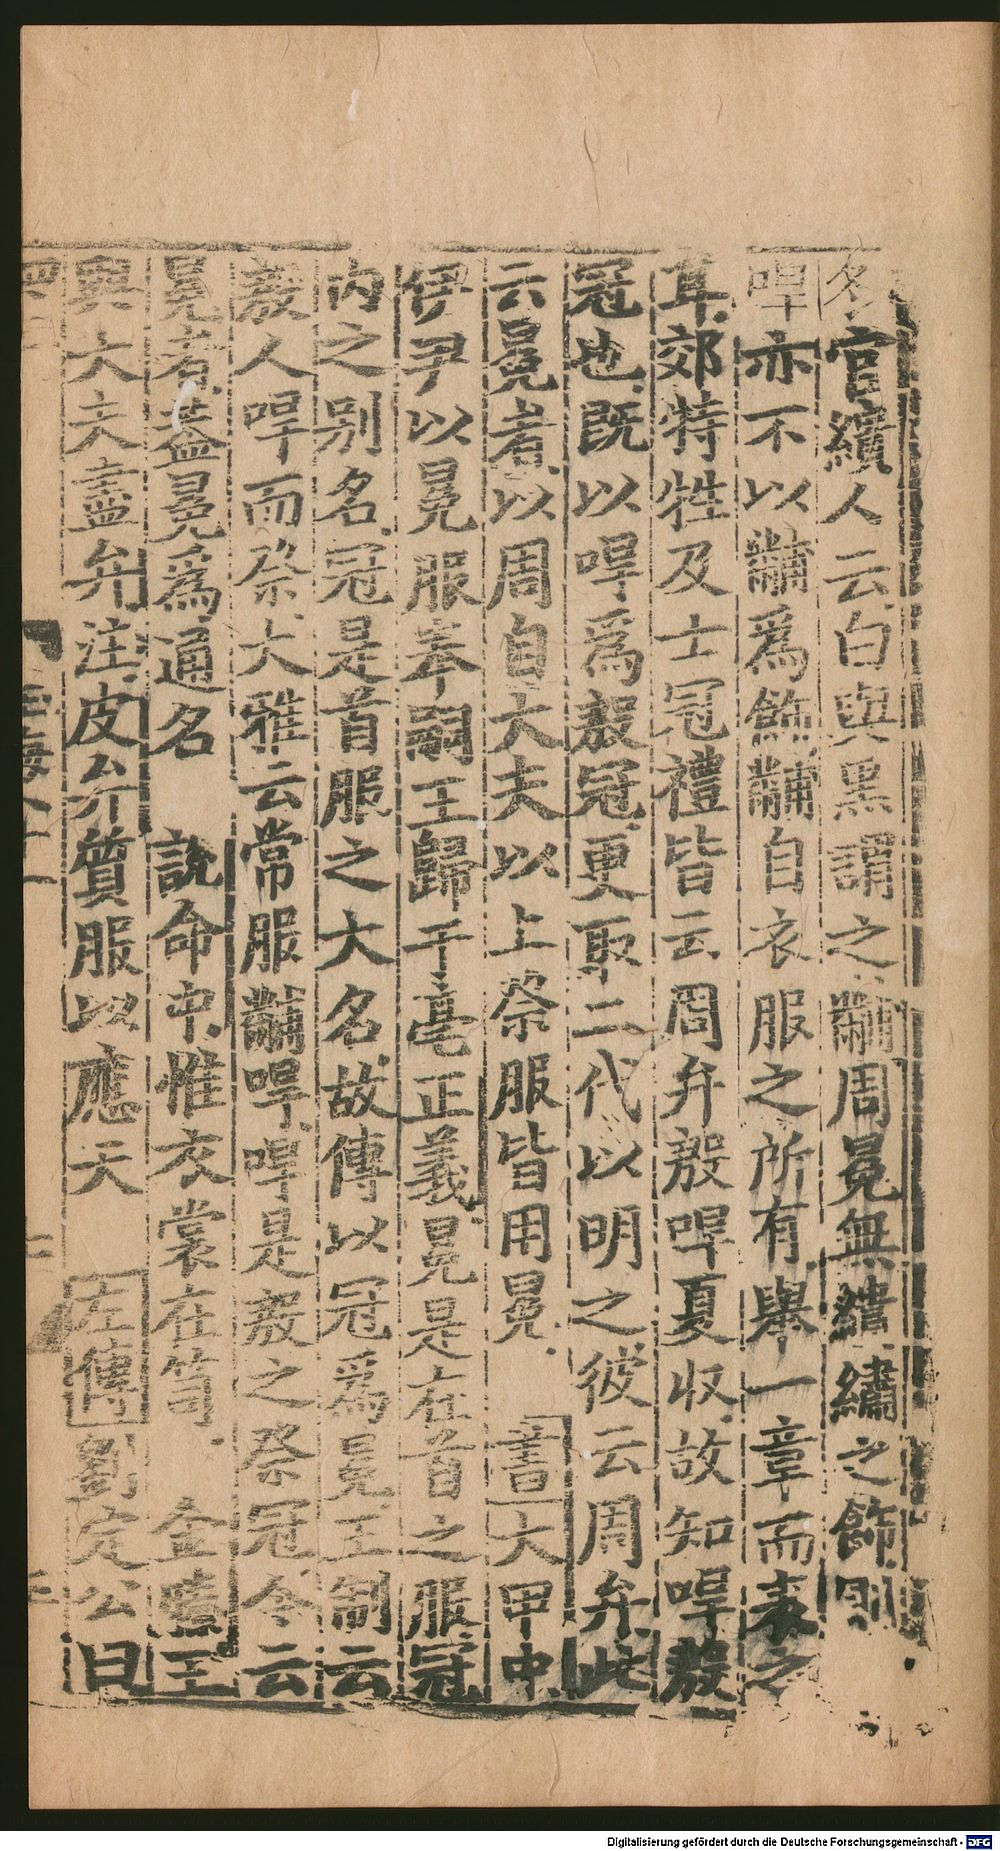 冬官繢人云白與黑謂之黼周冕無繢繡之飾則
哻亦不以黼爲飾黼自衣服之所有舉一章而表之
耳郊特牲及士冠禮皆云周弁殷哻夏収故知哻殷
冠也既以哻爲殷冠更取二代以明之彼云周弁此
云冕者以周自大夫以上祭服皆用冕 書大甲中
伊尹以冕服奉嗣王歸于亳正義冕是在首之服冠
内之别名冠是首服之大名故傳以冠爲冕王制云
殷人哻而祭大雅云常服黼哻哻是殷之祭冠今云
冕者蓋冕爲通名 說命中惟衣裳在笥 金縢王
與大夫盡弁注皮弁質服以應天 左傳劉定公曰
Digitalisierung gefördert durch die Deutsche Forschungsgemeinschaft - DFG